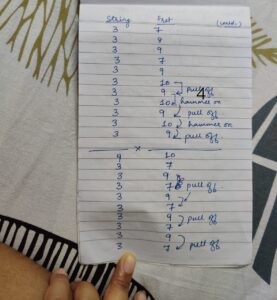 String Fret (contd.)
3 7
3 9
3 9
3 7
3 9
3 10
3 9 pull off
3 10 hammer on
3 9 pull off
3 10 hammer on
3 9 pull off
x
4 10
3 7
3 9
3 7 pull off
3 9
3 7
3 9 pull off
3 7
3 9
3 7 pull off
4